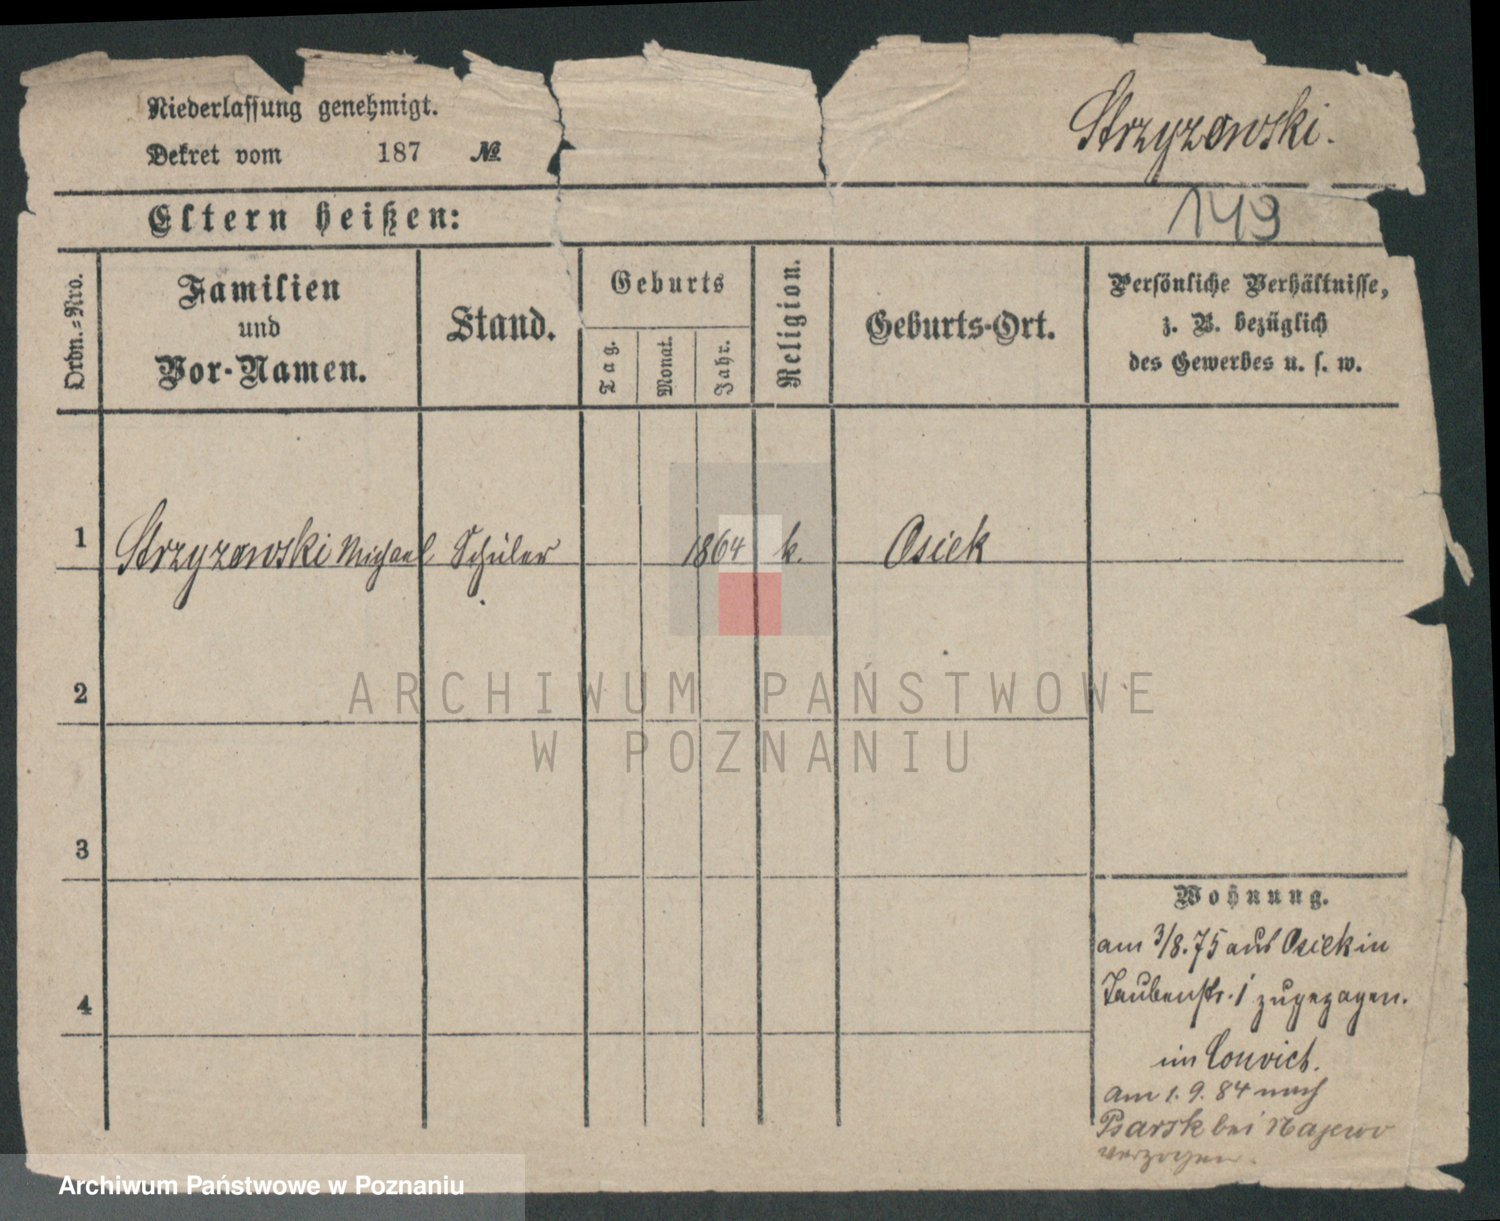 Niederlassung genehmigt.
Dekret vom 187 №
Strzyzowski.
149
Eltern heißen:
Ordn.=Nro.
Familien
und
Vor-Namen.
Stand.
Geburts
Tag.
Monat.
Jahr.
Religion.
Geburts-Ort.
Persönliche Verhältnisse,
z. B. bezüglich
des Gewerbes u. s. w.
1 Strzyzowski Michael Schüler 1864 k. Osiek
2
3
4
Wohnung.
am 3/8. 75 aus Osiek in
Taubenstr. 1 zugezogen.
im Convict.
am 1. 9. 84 nach
Psarsk bei
verzogen.
ARCHIWUM PAŃSTWOWE
W POZNANIU
Archiwum Państwowe w Poznaniu